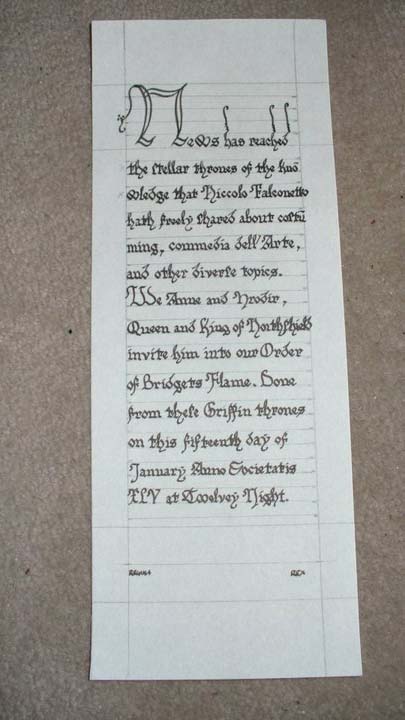 News has reached
the stellar thrones of the kno
wledge that Niccolo Falconetto
hath freely shared about costu
ming, commedia dell'Arte,
and other diverse topics.
We Anne and Hrodir,
Queen and King of Northshield
invite him into our Order
of Bridgets Flame. Done
from these Griffin thrones
on this fifteenth day of
January Anno Societatis
XLV at Twelvey Night.
Regina Rex